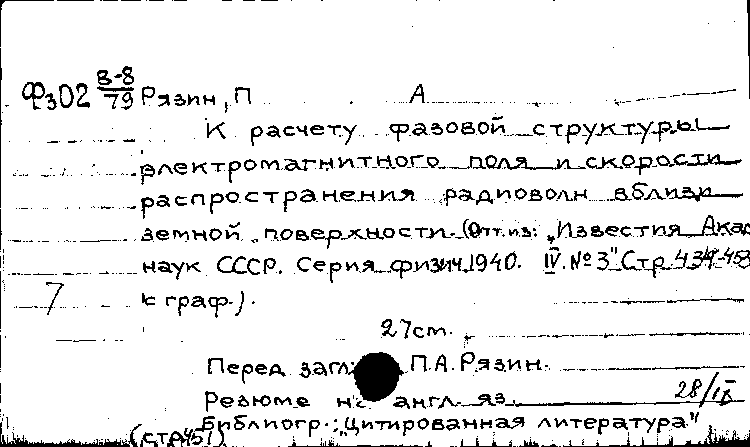 Фз02 В-8/79 Рязин, П А
К расчету фазовой структуры
электромагнитного поля и скорости
распространения радиоволн вблизи
земной поверхности. (Отт. из: „Известия Акад
наук СССР. Серия физич. 1940. IV. №3" Стр. 434-453
с граф.).
7
27 cm.
Перед загл. П.А. Рязин.
Резюме на англ. яз. 28/IX
Библиогр.: „Цитированная литература"
(стр. 451)